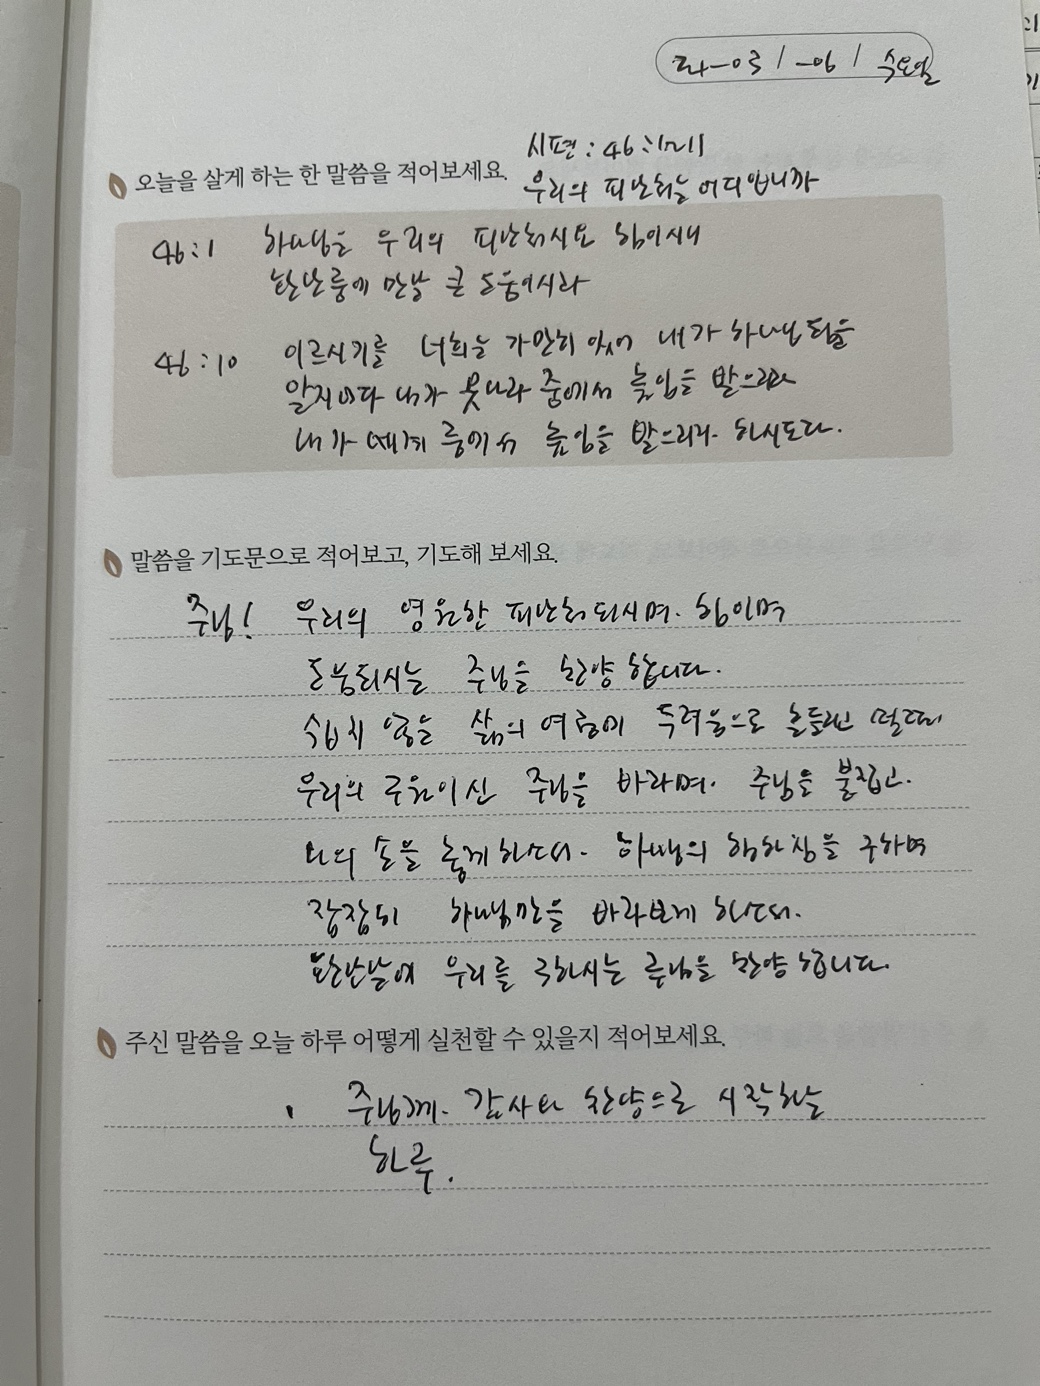 24-03/-06/ 수요일
시편 : 46:1~11
오늘을 살게 하는 한 말씀을 적어보세요.
우리의 피난처는 어디입니까
46:1 하나님은 우리의 피난처시요 힘이시니
환난중에 만날 큰 도움이시라
46:10 이르시기를 너희는 가만히 있어 내가 하나님 됨을
알지어다 내가 뭇나라 중에서 높임을 받으리라
내가 세계 중에서 높임을 받으리라 하시도다.
말씀을 기도문으로 적어보고, 기도해 보세요.
주님! 우리의 영원한 피난처 되시며. 힘이며
도움되시는 주님을 찬양합니다.
쉽지 않은 삶의 여정에 두려움으로 흔들린
우리의 구원이신 주님을 바라며. 주님을 붙잡고.
나의 손을 놓게하소서. 하나님의 행하심을 구하며
잠잠히 하나님만을 바라보게 하소서.
환난날에 우리를 구하시는 주님을 찬양합니다.
주신 말씀을 오늘 하루 어떻게 실천할 수 있을지 적어보세요.
주님께. 감사와 찬양으로 시작하는
하루.